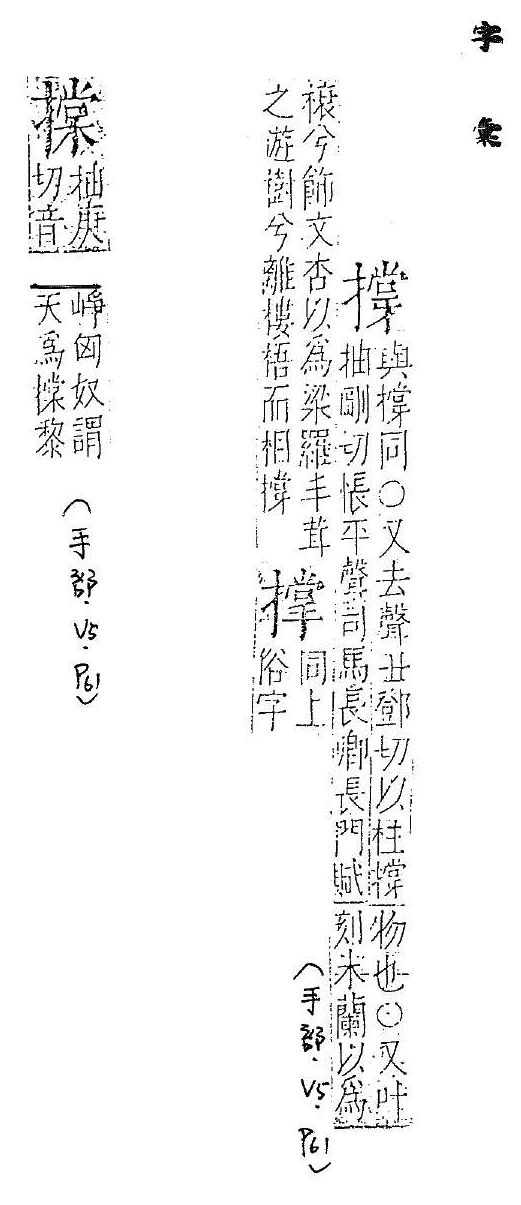 字彙
撐
與撐同○又去聲丑鄧切以柱撐物也○又叶
抽剛切悵平聲司馬長卿長門賦刻木蘭以為
榱兮飾文杏以為梁羅丰茸
之遊樹兮離樓梧而相撐
撑
同上
俗字
(手部.V5.P61)
抽庚
切音
崢匈奴謂
天為黎
(手部.V5.P61)